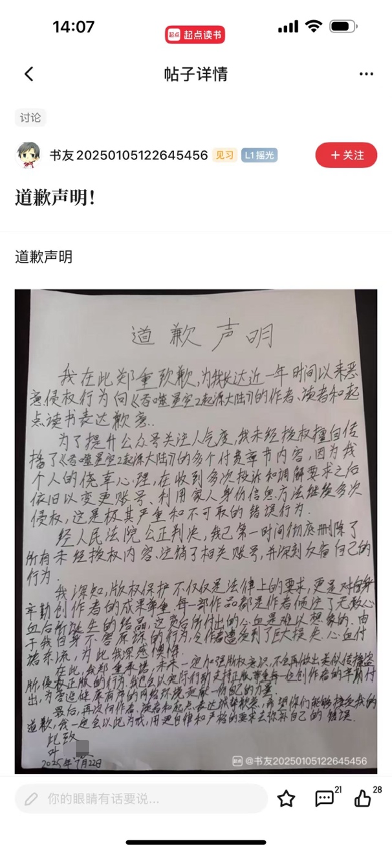 14:07
起点 起点读书
帖子详情
讨论
书友20250105122645456 见习 L1摇光
+ 关注
道歉声明！
道歉声明
道歉声明
我在此郑重致歉,为我长达近一年时间以来恶
意侵权行为向《吞噬星空2起源大陆》的作者、读者和起
点读书表达歉意.
为了提升公众号关注人气度,我未经授权擅自传
播了《吞噬星空2起源大陆》的多个付费章节内容,因为我
个人的侥幸心理,在收到多次投诉和调解要求之后
依旧以变更账号、利用家人身份信息方法继续多次
侵权,这是极其严重和不可取的错误行为.
经人民法院公正判决,我已第一时间彻底删除了
所有未经授权内容,注销了相关账号,并深刻反省自己的
行为.
我深知,版权保护不仅仅是法律上的要求,更是对每份
辛勤创作者的成果尊重,每一部作品都是作者倾注了无数心
血后所诞生的结晶,这背后所付出的心血是难以想象的.由
于我自身不当的行为,令作者遭受到了巨大损失,心血付
诸东流,为此我深感懊悔.
在此,我郑重承诺:未来一定加强版权意识,不会再做出类似传播盗
版,侵权的行为,
出,为营造健康有序的网络环境贡献一份自己的力量.
最后,再次向作者、读者和起点表达诚挚歉意,希望你们能够接受我的
道歉,我一定会以此为戒,用更自律和严格的要求去弥补自己的错误.
此致
叶
2025年7月22日
@书友20250105122645456
你的眼睛有话要说...
21
28